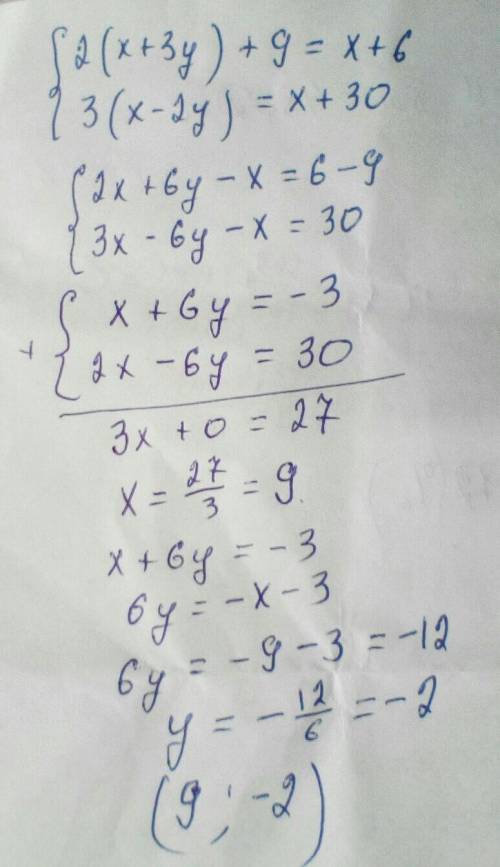 2(x+3y)+9=x+6
3(x-2y)=x+30
2x+6y-x=6-9
3x-6y-x=30
x+6y=-3
+
2x-6y=30
3x+0=27
x=27/3=9.
x+6y=-3
6y=-x-3
6y=-9-3=-12
y=-12/6=-2
(9;-2)